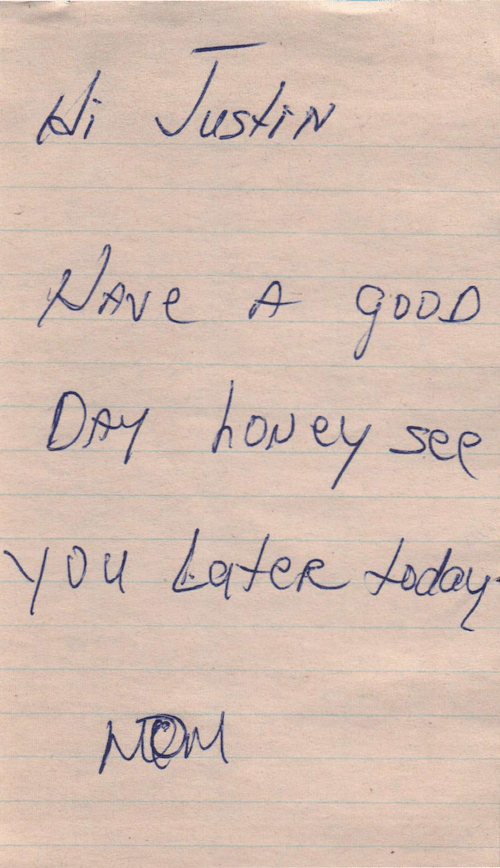 Hi Justin
Have A good
Day honey see
you Later today.
MOM